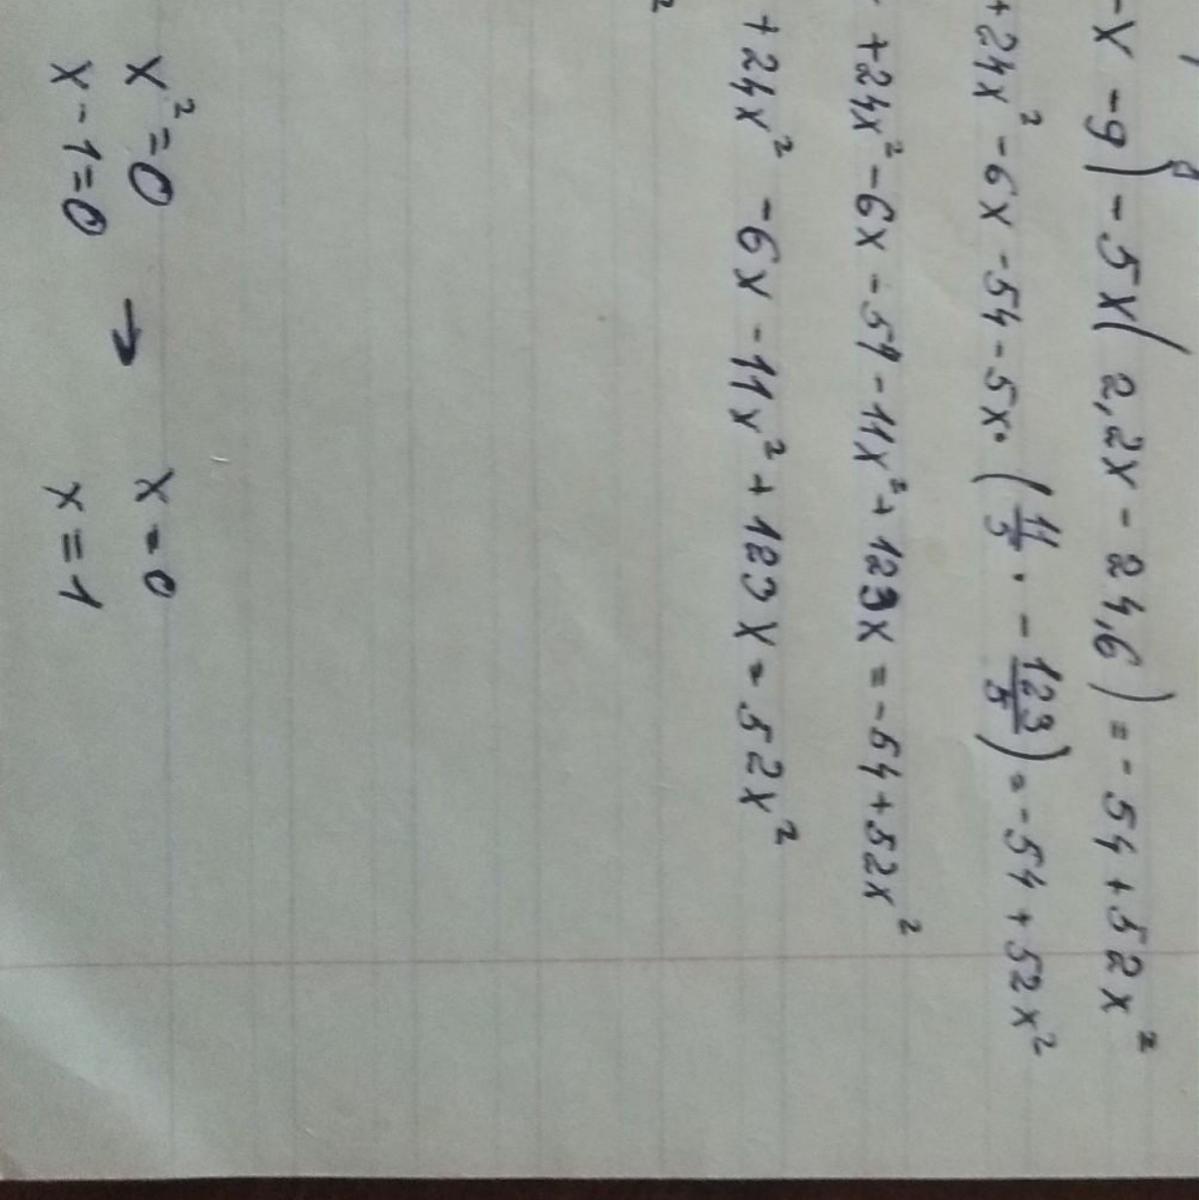 -x -9) - 5x( 2,2x - 24,6) = -54 + 52x²
+24x² -6x -54 - 5x· (11/5 · - 123/5) = -54 + 52x²
+24x² -6x -54 -11x² + 123x = -54 + 52x²
+24x² -6x -11x² + 123x = 52x²
2
x² = 0 → x = 0
x - 1 = 0 x = 1